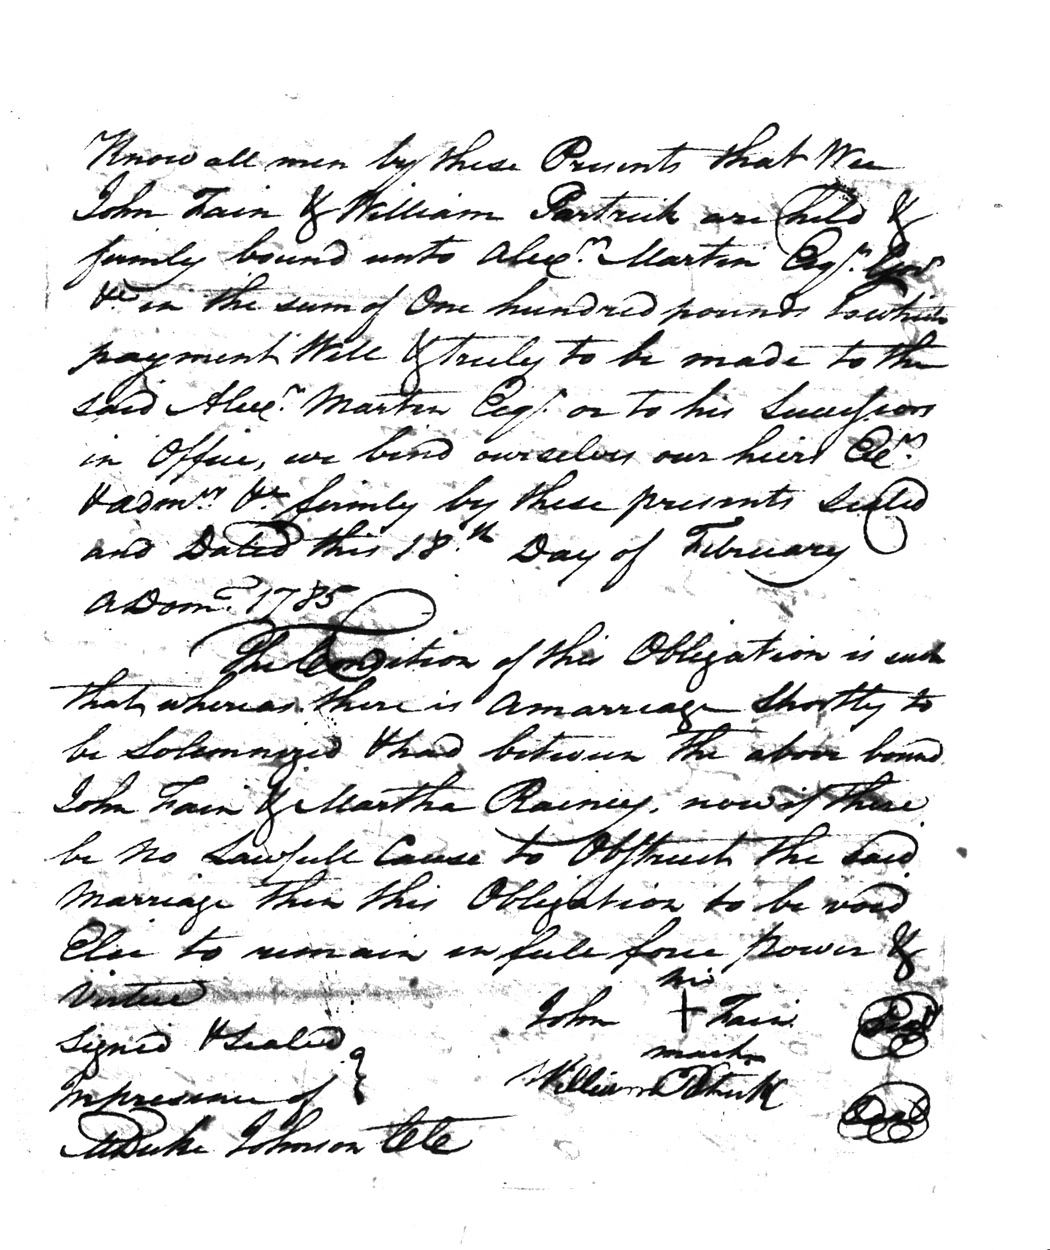 Know all men by these Presents that Wee
John Fain & William Partrick are held &
firmly bound unto Alexr. Martin Esqr. Govr
&c in the sum of One hundred pounds to which
payment Well & truly to be made to the
said Alexr. Martin Esqr. or to his Successors
in Office, we bind ourselves our heirs Exrs.
& admrs. &c. firmly by these presents Sealed
and Dated this 18th. Day of February
ADom. 1785
The Condition of this Obligation is such
that whereas there is a marriage Shortly to
be Solemnized & had between the above bound
John Fain & Martha Rainey, now if there
be no Lawfull Cause to Obstruct the said
Marriage then this Obligation to be void
Else to remain in full force power &
Virtue
his
John + Fain Seal
mark
Signed & Sealed
William Seal
In presence of
Duke Johnson